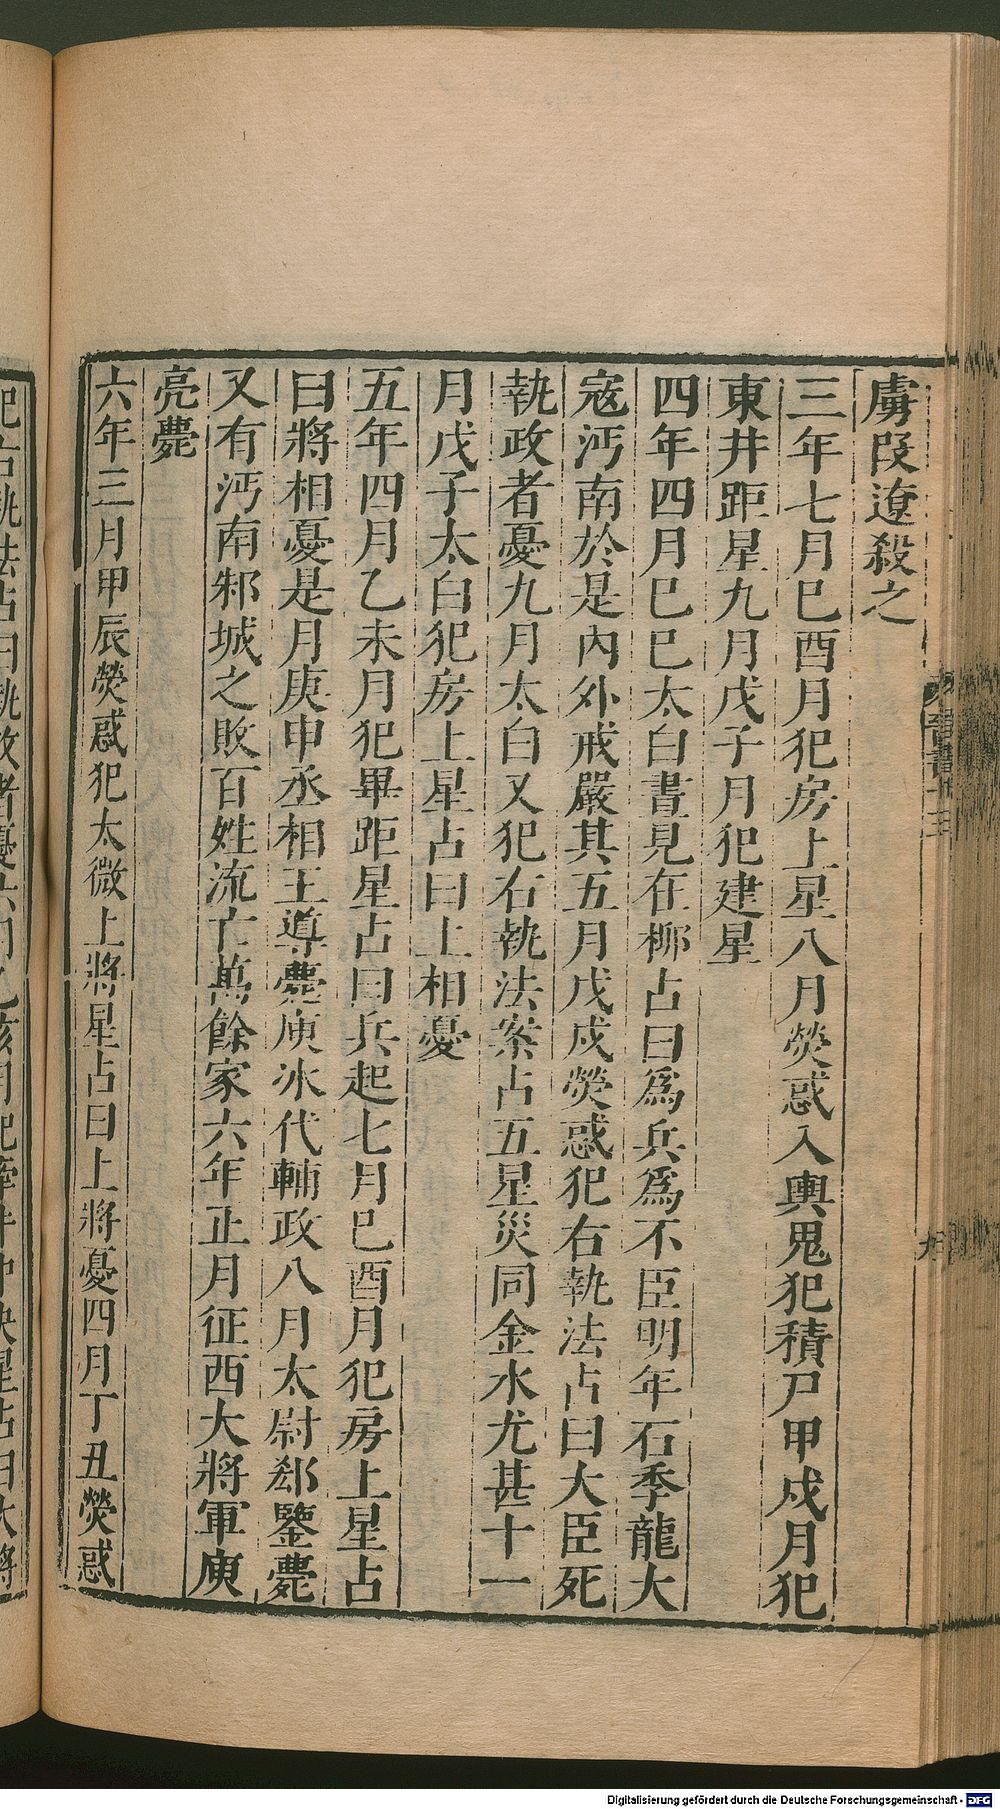 虜段遼殺之
三年七月巳酉月犯房上星八月熒惑入輿鬼犯積尸甲戍月犯
東井距星九月戊子月犯建星
四年四月巳巳太白晝見在柳占曰爲兵爲不臣明年石季龍大
寇沔南於是內外戒嚴其五月戊戍熒惑犯右執法占曰大臣死
執政者憂九月太白又犯右執法案占五星災同金水尤甚十一
月戊子太白犯房上星占曰上相憂
五年四月乙未月犯畢距星占曰兵起七月巳酉月犯房上星占
曰將相憂是月庚申丞相王導薨庾冰代輔政八月太尉郄鑒薨
又有沔南邾城之敗百姓流亡萬餘家六年正月征西大將軍庾
亮薨
六年三月甲辰熒惑犯太微上將星占曰上將憂四月丁丑熒惑
犯右執法占曰執政者憂六月乙亥月犯牽牛中央星占曰大將
晉書十三
Digitalisierung gefördert durch die Deutsche Forschungsgemeinschaft - DFG